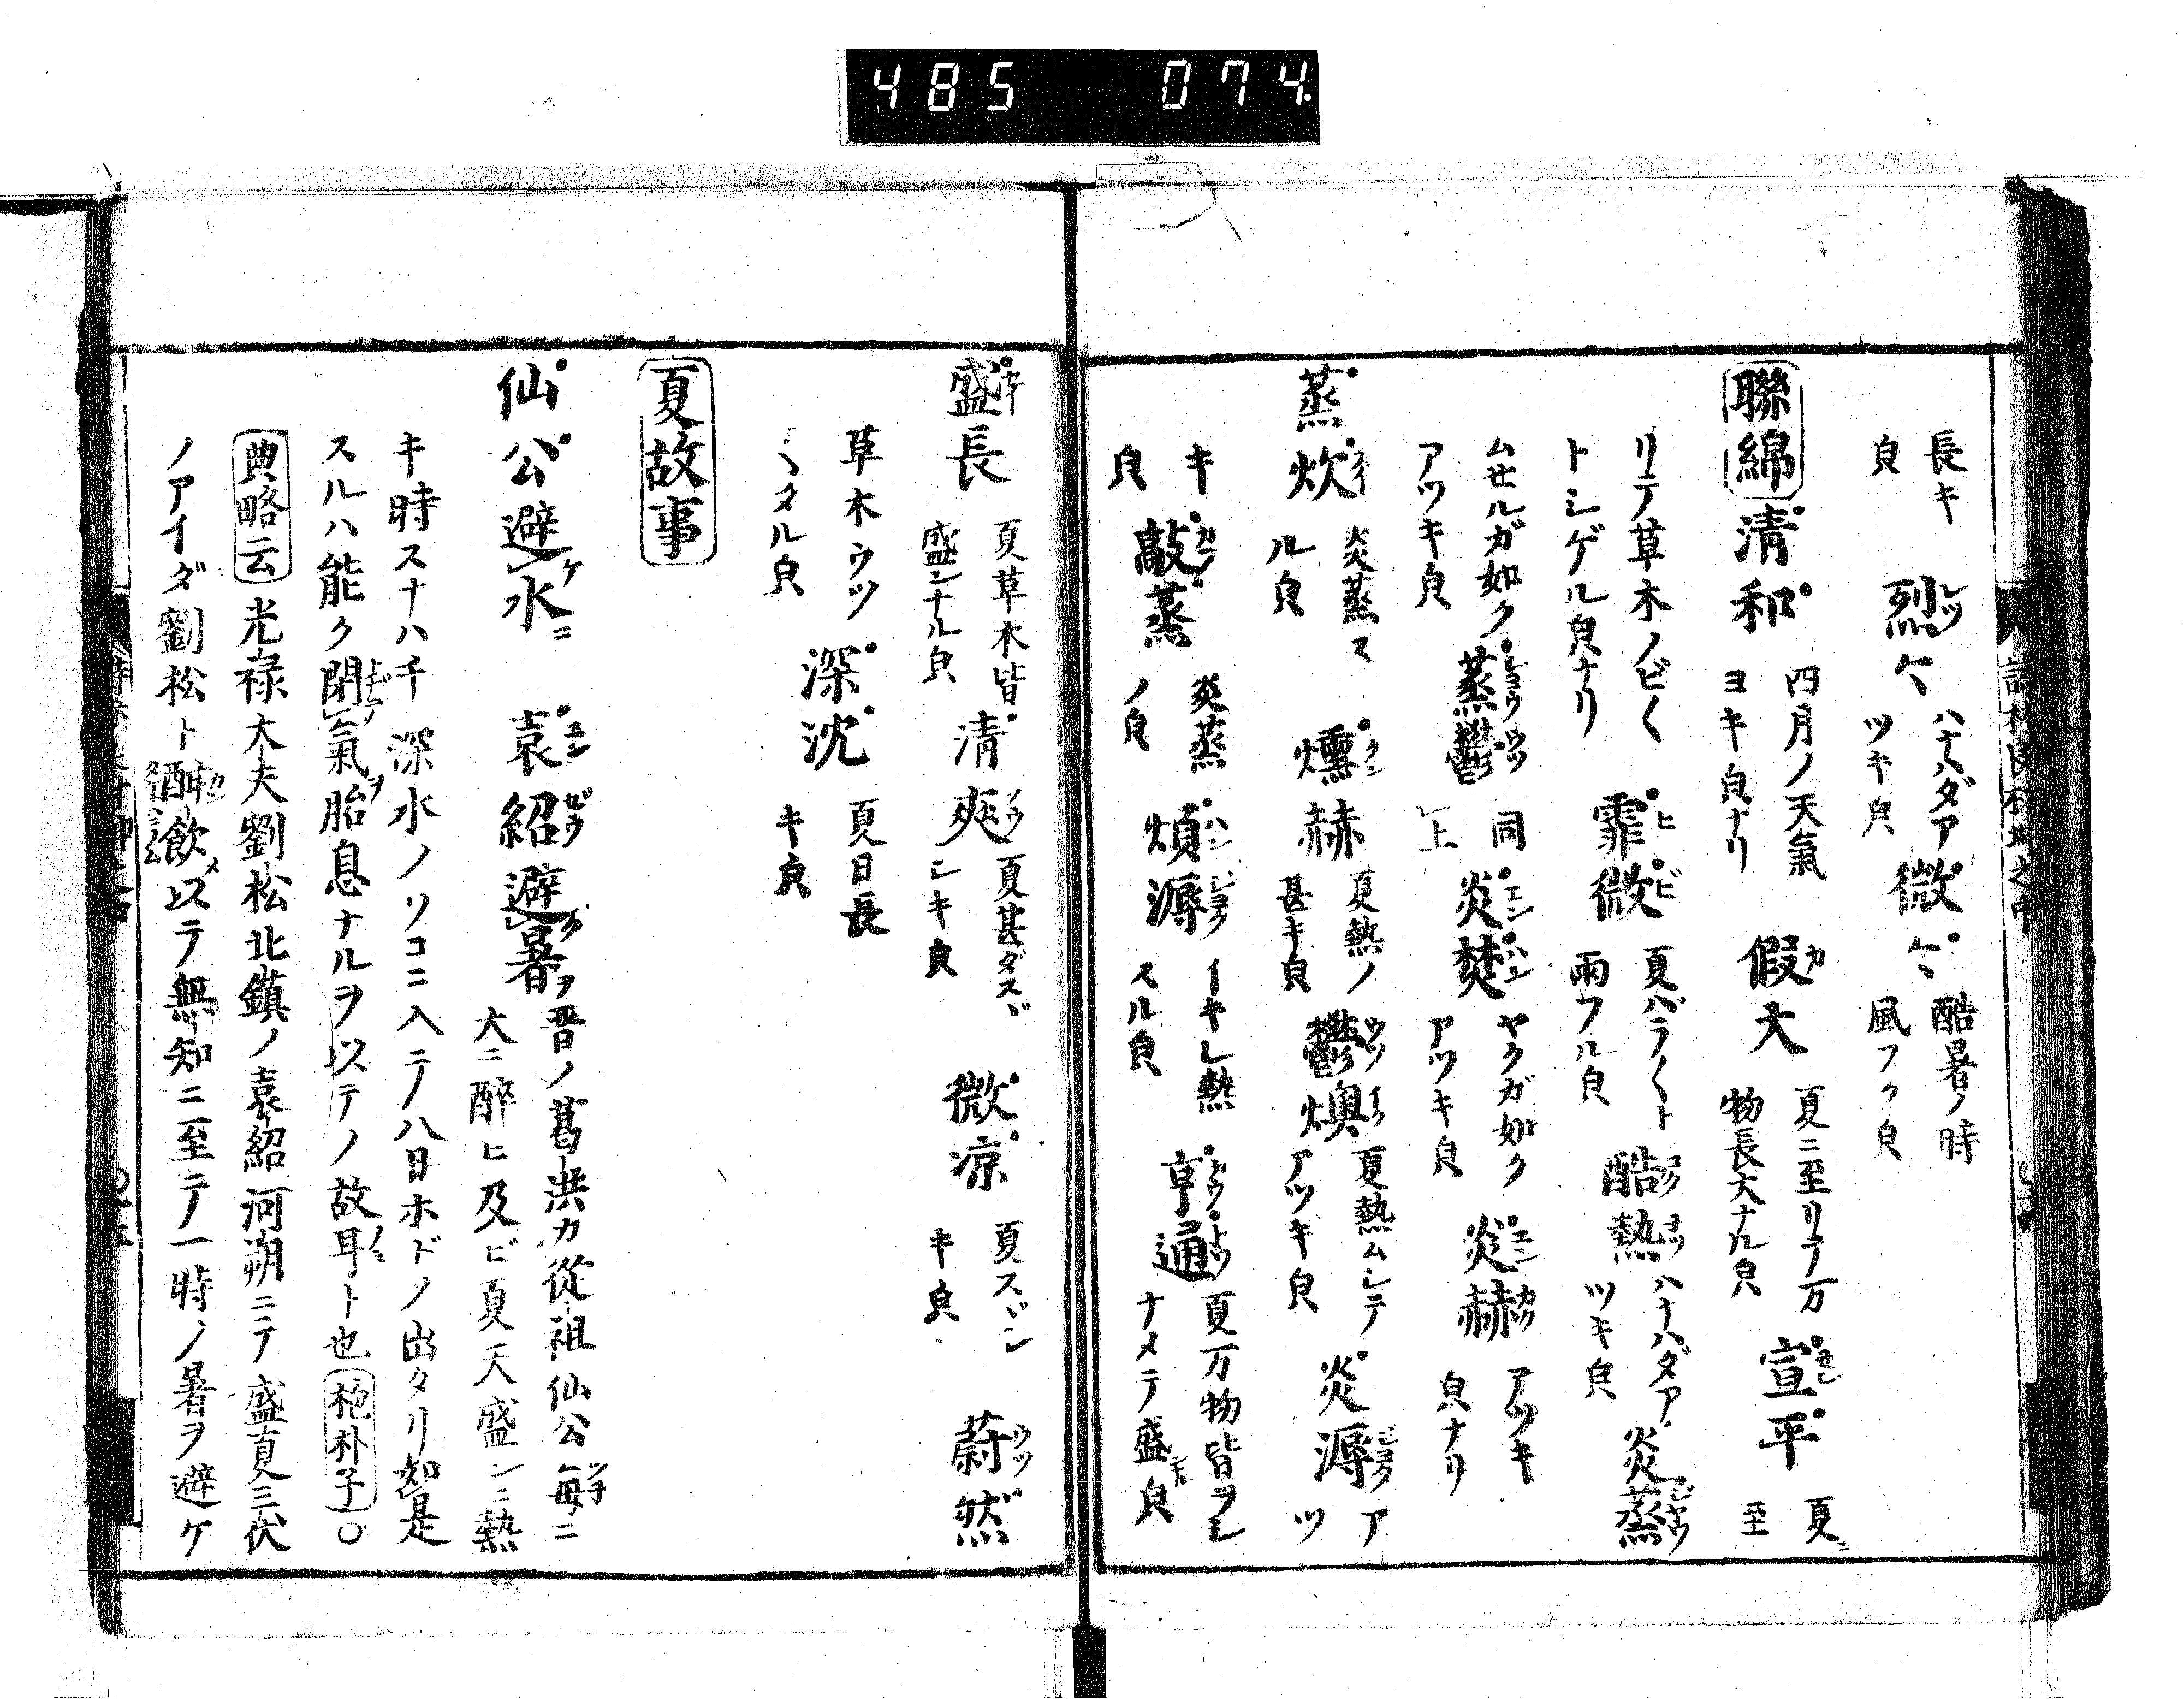 485 074
長キ
皃
烈〻
ハナハダア
ツキ皃
微〻
酷暑ノ時
風フク皃
聯綿
清和
四月ノ天氣
ヨキ皃ナリ
假大
夏ニ至リテ万
物長大ナル皃
宣平
夏ニ
至
リテ草木ノビ〱
トシゲル皃ナリ
霏微
夏バラ〱ト
雨フル皃
酷熱
ハナハダア
ツキ皃
炎蒸
ムせルガ如ク
アツキ皃
蒸鬱
同
上
炎焚
ヤクガ如ク
アツキ皃
炎赫
アツキ
皃ナリ
蒸炊
炎蒸ス
ル皃
燻赫
夏熱ノ
甚キ皃
鬱燠
夏熱ムシテ
アツキ皃
炎溽
ア
ツ
キ
皃
歊蒸
炎蒸
ノ皃
煩溽
イキレ熱
スル皃
亨通
夏万物皆ヲシ
ナメテ盛皃
盛長
夏草木皆
盛ンナル皃
清爽
夏甚ダスヾ
シキ皃
微凉
夏スヾシ
キ皃
蔚然
草木ウツ
〱タル皃
深沈
夏日長
キ皃
夏故事
仙公避水ニ
袁紹避暑ヲ
晋ノ葛洪カ從祖仙公毎ニ
大ニ醉ヒ及ビ夏天盛ンニ熱
キ時スナハチ深水ノソコニ入テ八日ホドノ出タリ如是
スルハ能ク閉氣胎息ナルヲ以テノ故耳ト也 抱朴子 〇
典略云 光禄大夫劉松北鎮ノ袁紹河朔ニテ盛夏三伏
ノアイダ劉松ト酣飲以テ無知ニ至ニ一時ノ暑ヲ避ケ